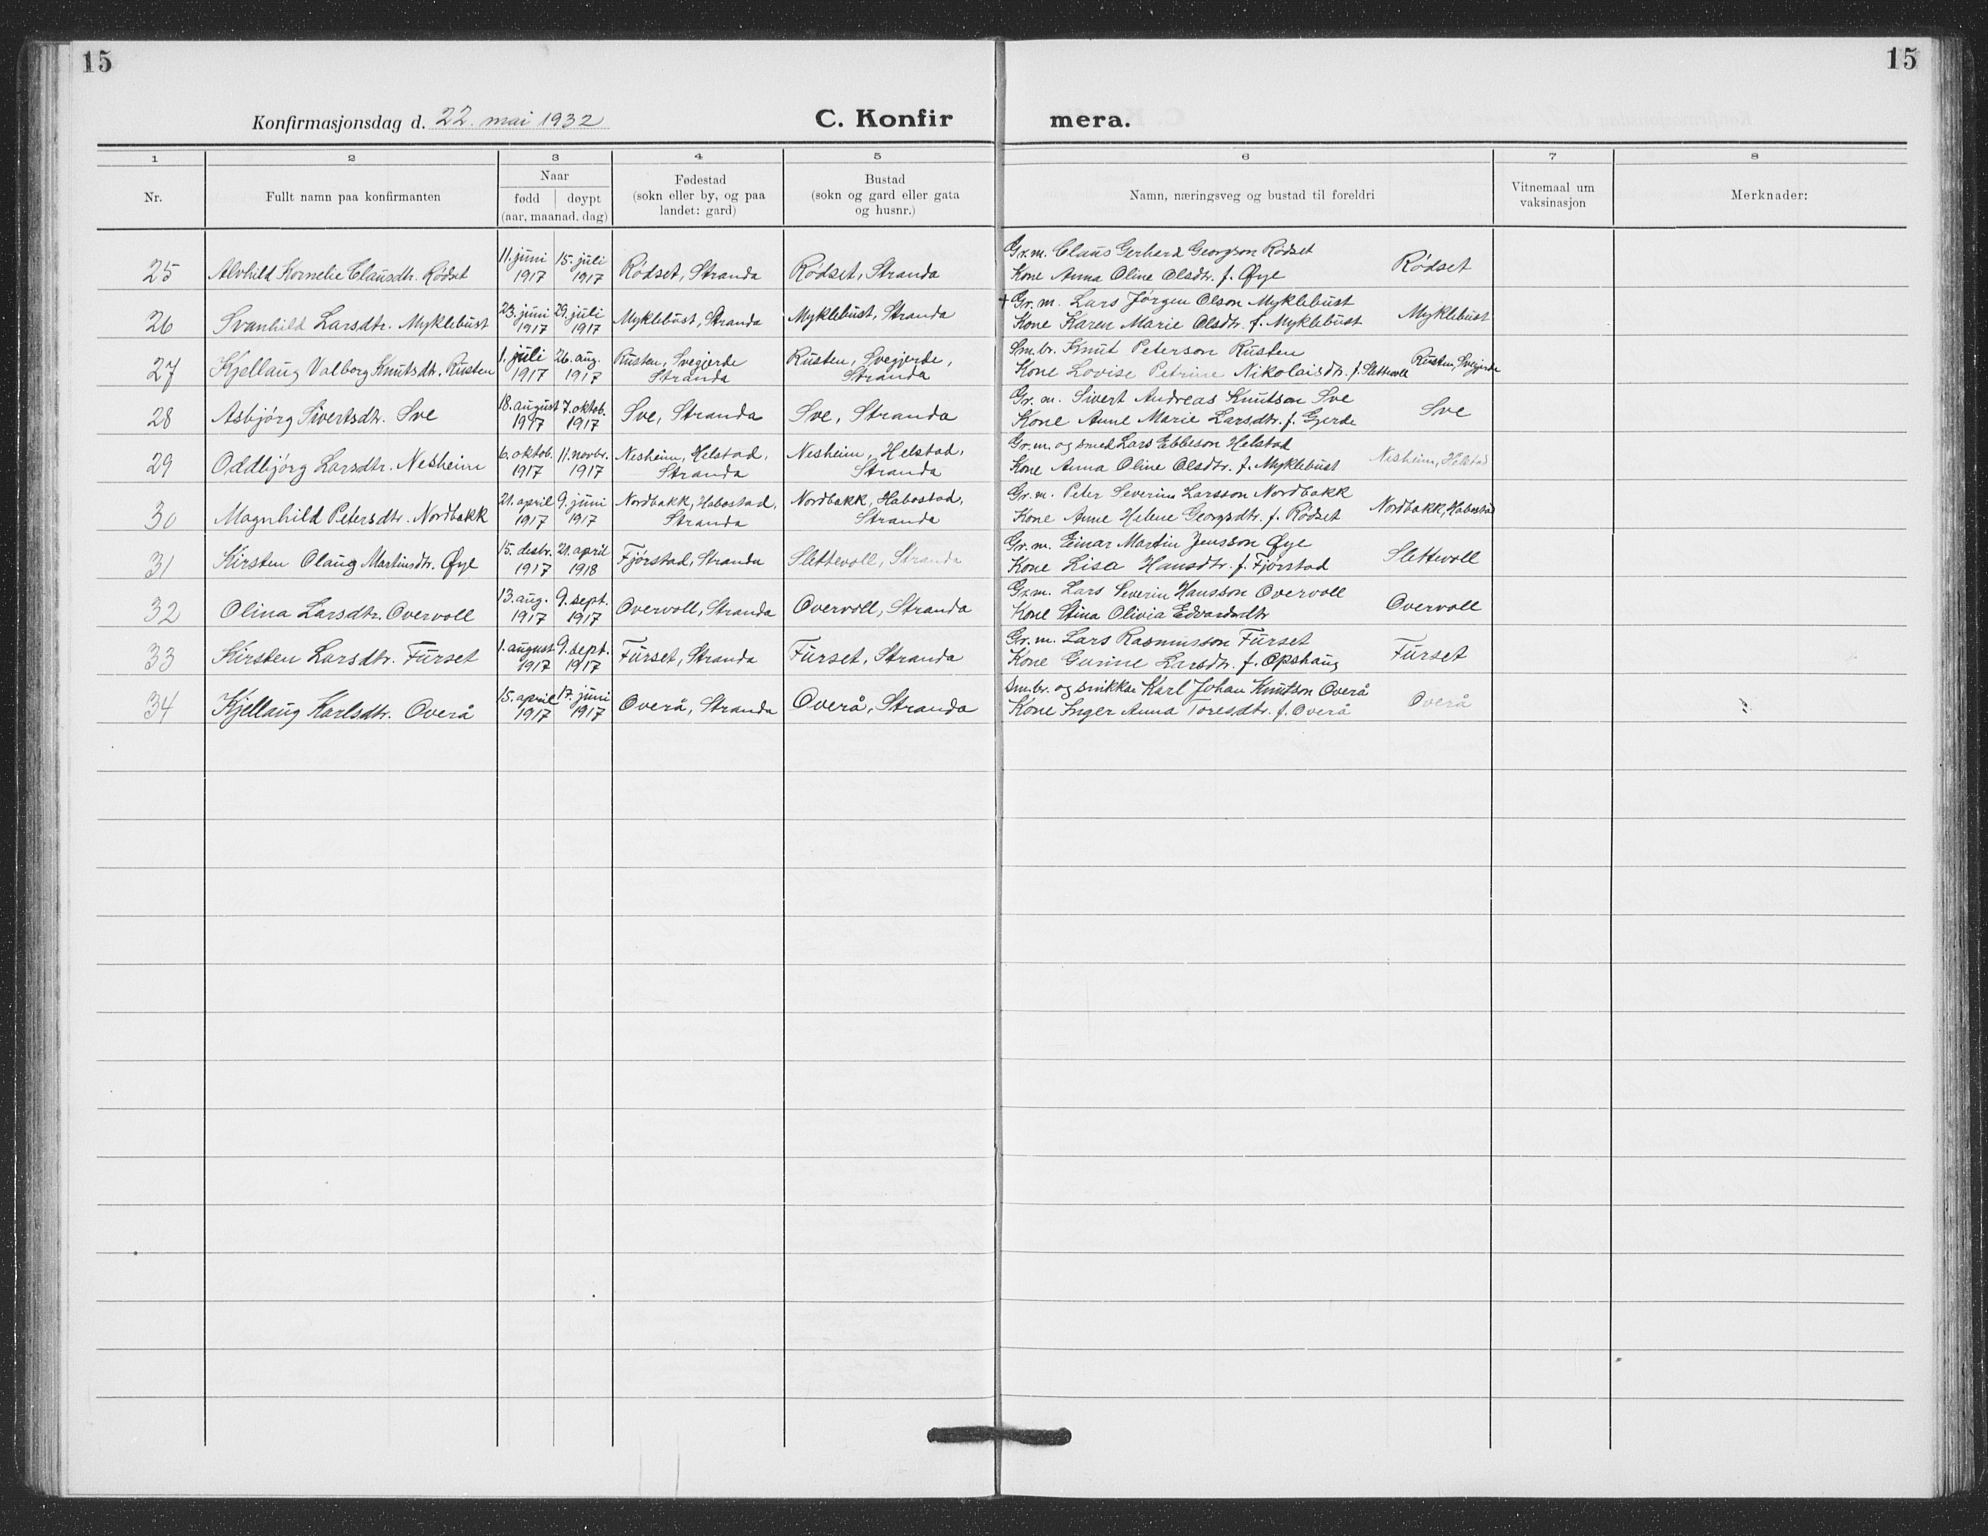 15
15
Konfirmasjonsdag d. 22. mai 1932
C. Konfir
mera.
1 2 3 4 5 6 7 8
Nr.
Fullt namn paa konfirmanten
Naar
fødd døypt
(aar, maanad, dag)
Fødestad
(sokn eller by, og paa
landet: gard)
Bustad
(sokn og gard eller gata
og husnr.)
Namn, næringsveg og bustad til foreldri
Vitnemaal um
vaksinasjon
Merknader:
25 Alvhild Kornelie Clausdtr. Rødset 11. juni 1917 15. juli 1917 Rødset, Stranda Rødset, Stranda Gr.m. Claus Gerhard Georgson Rødset
Kone Anna Oline Olsdtr. f. Øye Rødset
26 Svanhild Larsdtr. Myklebust 23. juni 1917 29. juli 1917 Myklebust, Stranda Myklebust, Stranda + Gr.m. Lars Jørgen Olson Myklebust
Kone Karen Marie Olsdtr. f. Myklebust Myklebust
27 Kjellaug Valborg Knutsdtr. Rusten 1. juli 1917 26. aug. 1917 Rusten, Svegjerde Stranda Rusten, Svegjerde, Stranda Sm.br. Knut Peterson Rusten
Kone Lovise Petrine Nikolaisdtr. f. Slettevoll Rusten, Svegjerde
28 Asbjørg Sivertsdtr. Sve 18. august 1917 7. oktob. 1917 Sve, Stranda Sve, Stranda Gr.m. Sivert Andreas Knutson Sve
Kone Anne Marie Larsdtr. f. Gjerde Sve
29 Oddbjørg Larsdtr. Nesheim 6. oktob. 1917 11. novbr. 1917 Nesheim, Helstad, Stranda Nesheim, Helstad, Stranda Gr.m. og smed Lars Ebbeson Helstad
Kone Anna Oline Olsdtr. f. Myklebust Nesheim, Helstad
30 Magnhild Petersdtr. Nordbakk 21. april 1917 9. juni 1917 Nordbakk, Habostad, Stranda Nordbakk, Habostad, Stranda Gr.m. Peter Severin Larsson Nordbakk
Kone Anne Helene Georgsdtr. f. Rødset Nordbakk, Habostad
31 Kirsten Olaug Martinsdtr. Øye 15. desbr. 1917 21. april 1918 Fjørstad, Stranda Slettevoll, Stranda Gr.m. Einar Martin Jensson Øye
Kone Lisa Hansdtr. f. Fjørstad Slettevoll
32 Olina Larsdtr. Overvoll 13. aug. 1917 9. sept. 1917 Overvoll, Stranda Overvoll, Stranda Gr.m. Lars Severin Hansson Overvoll
Kone Stina Olivia Edvardsdtr Overvoll
33 Kirsten Larsdtr. Furset 1. august 1917 9. sept. 1917 Furset, Stranda Furset, Stranda Gr.m. Lars Rasmusson Furset
Kone Gurine Larsdtr. f. Opshaug Furset
34 Kjellaug Karlsdtr. Overå 15. april 1917 17. juni 1917 Overå, Stranda Overå, Stranda Sm.br. og snikkar Karl Johan Knutson Overå
Kone Inger Anna Toresdtr. f. Overå Overå